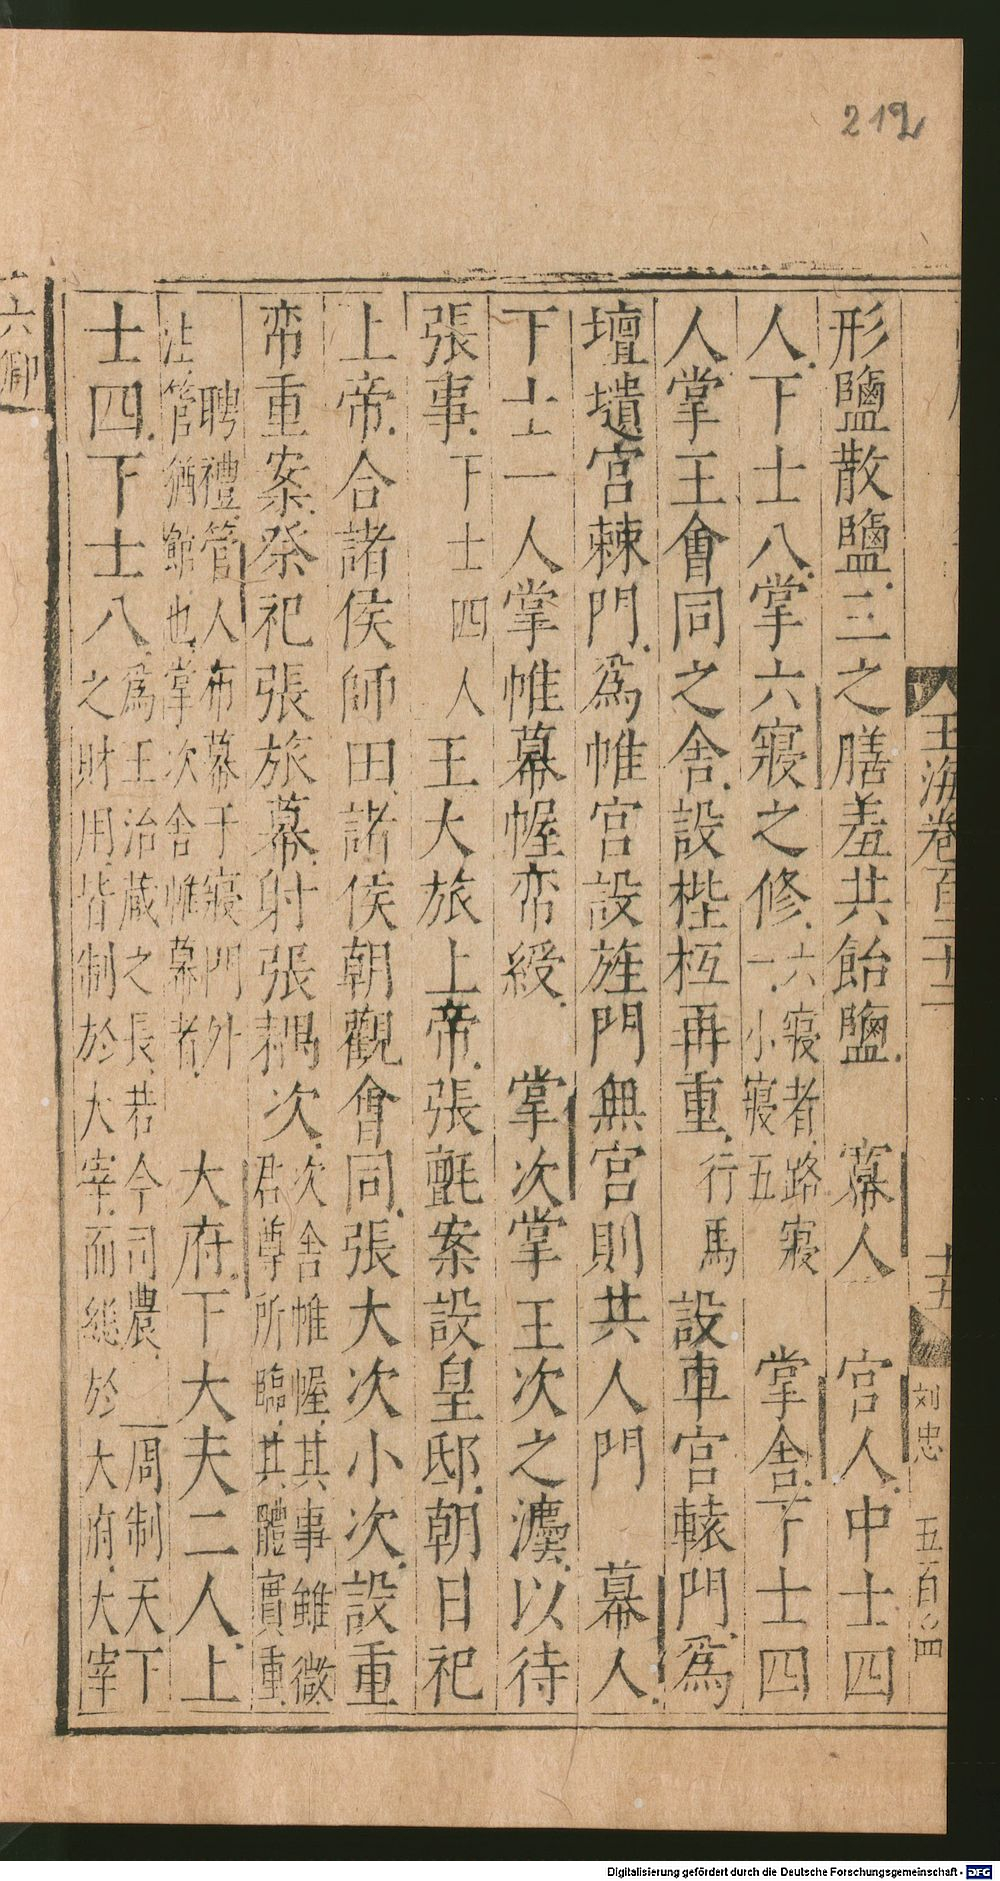 212
玉海卷百二十二
十五
刘忠
五百〇四
形鹽散鹽三之膳羞共飴鹽 幕人 宮人中士四
人下士八掌六寢之修六寢者路寢一小寢五 掌舍下士四
人掌王會同之舍設梐枑再重行馬設車宮轅門爲
壇壝宮棘門爲帷宮設旌門無宮則共人門 幕人
下士一人掌帷幕幄帟綬 掌次掌王次之灋以待
張事下士四人王大旅上帝張氊案設皇邸朝日祀
上帝合諸侯師田諸侯朝觀會同張大次小次設重
帟重案祭祀張旅幕射張耦次次舍帷幄其事雖微君尊所臨其體實重
聘禮管人布幕于寢門外注管猶館也掌次舍帷幕者 大府下大夫二人上
士四下士八爲王治蔵之長若今司農周制天下之財用皆制於大宰而緫於大府大宰
六卿
Digitalisierung gefördert durch die Deutsche Forschungsgemeinschaft - DFG